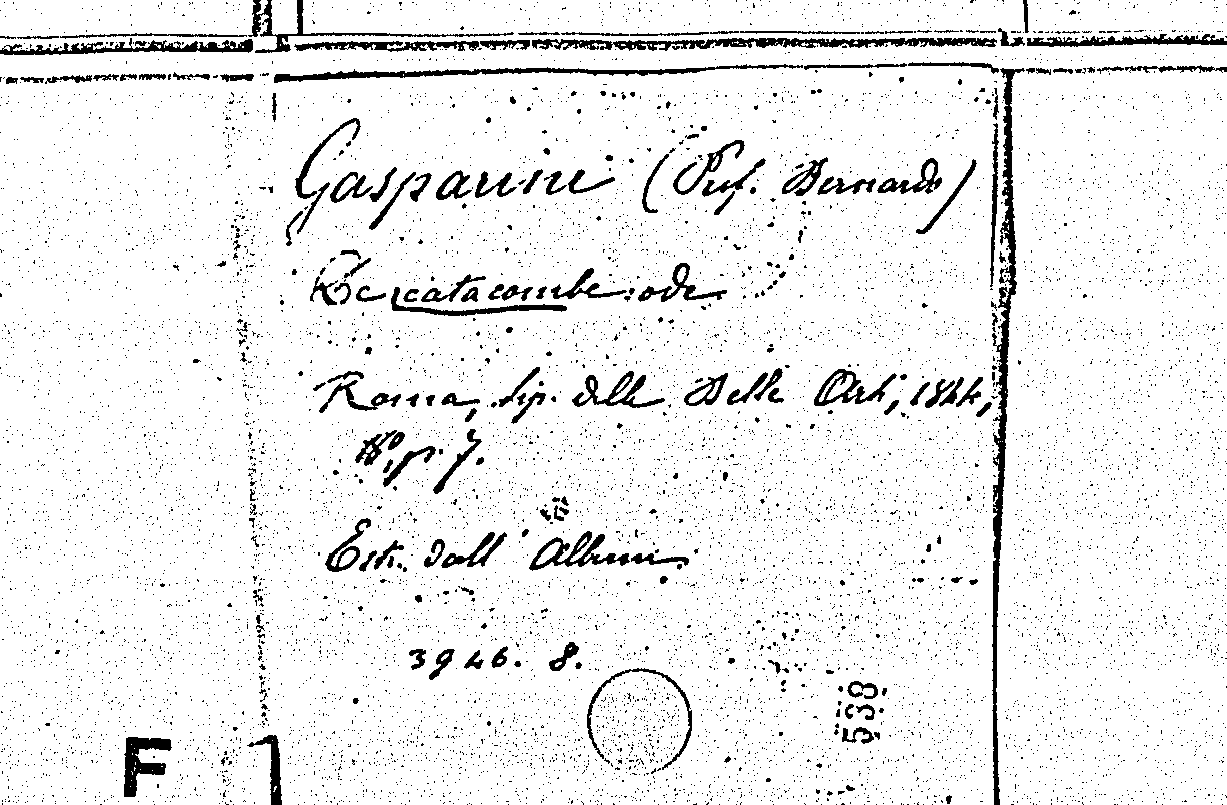 Gasparini (Prof. Bernardo)
Le catacombe: ode.
Roma, tip. delle Belle Arti, 1844,
8º, p. 7.
Estr. dall' Album.
3946. 8.
538
F